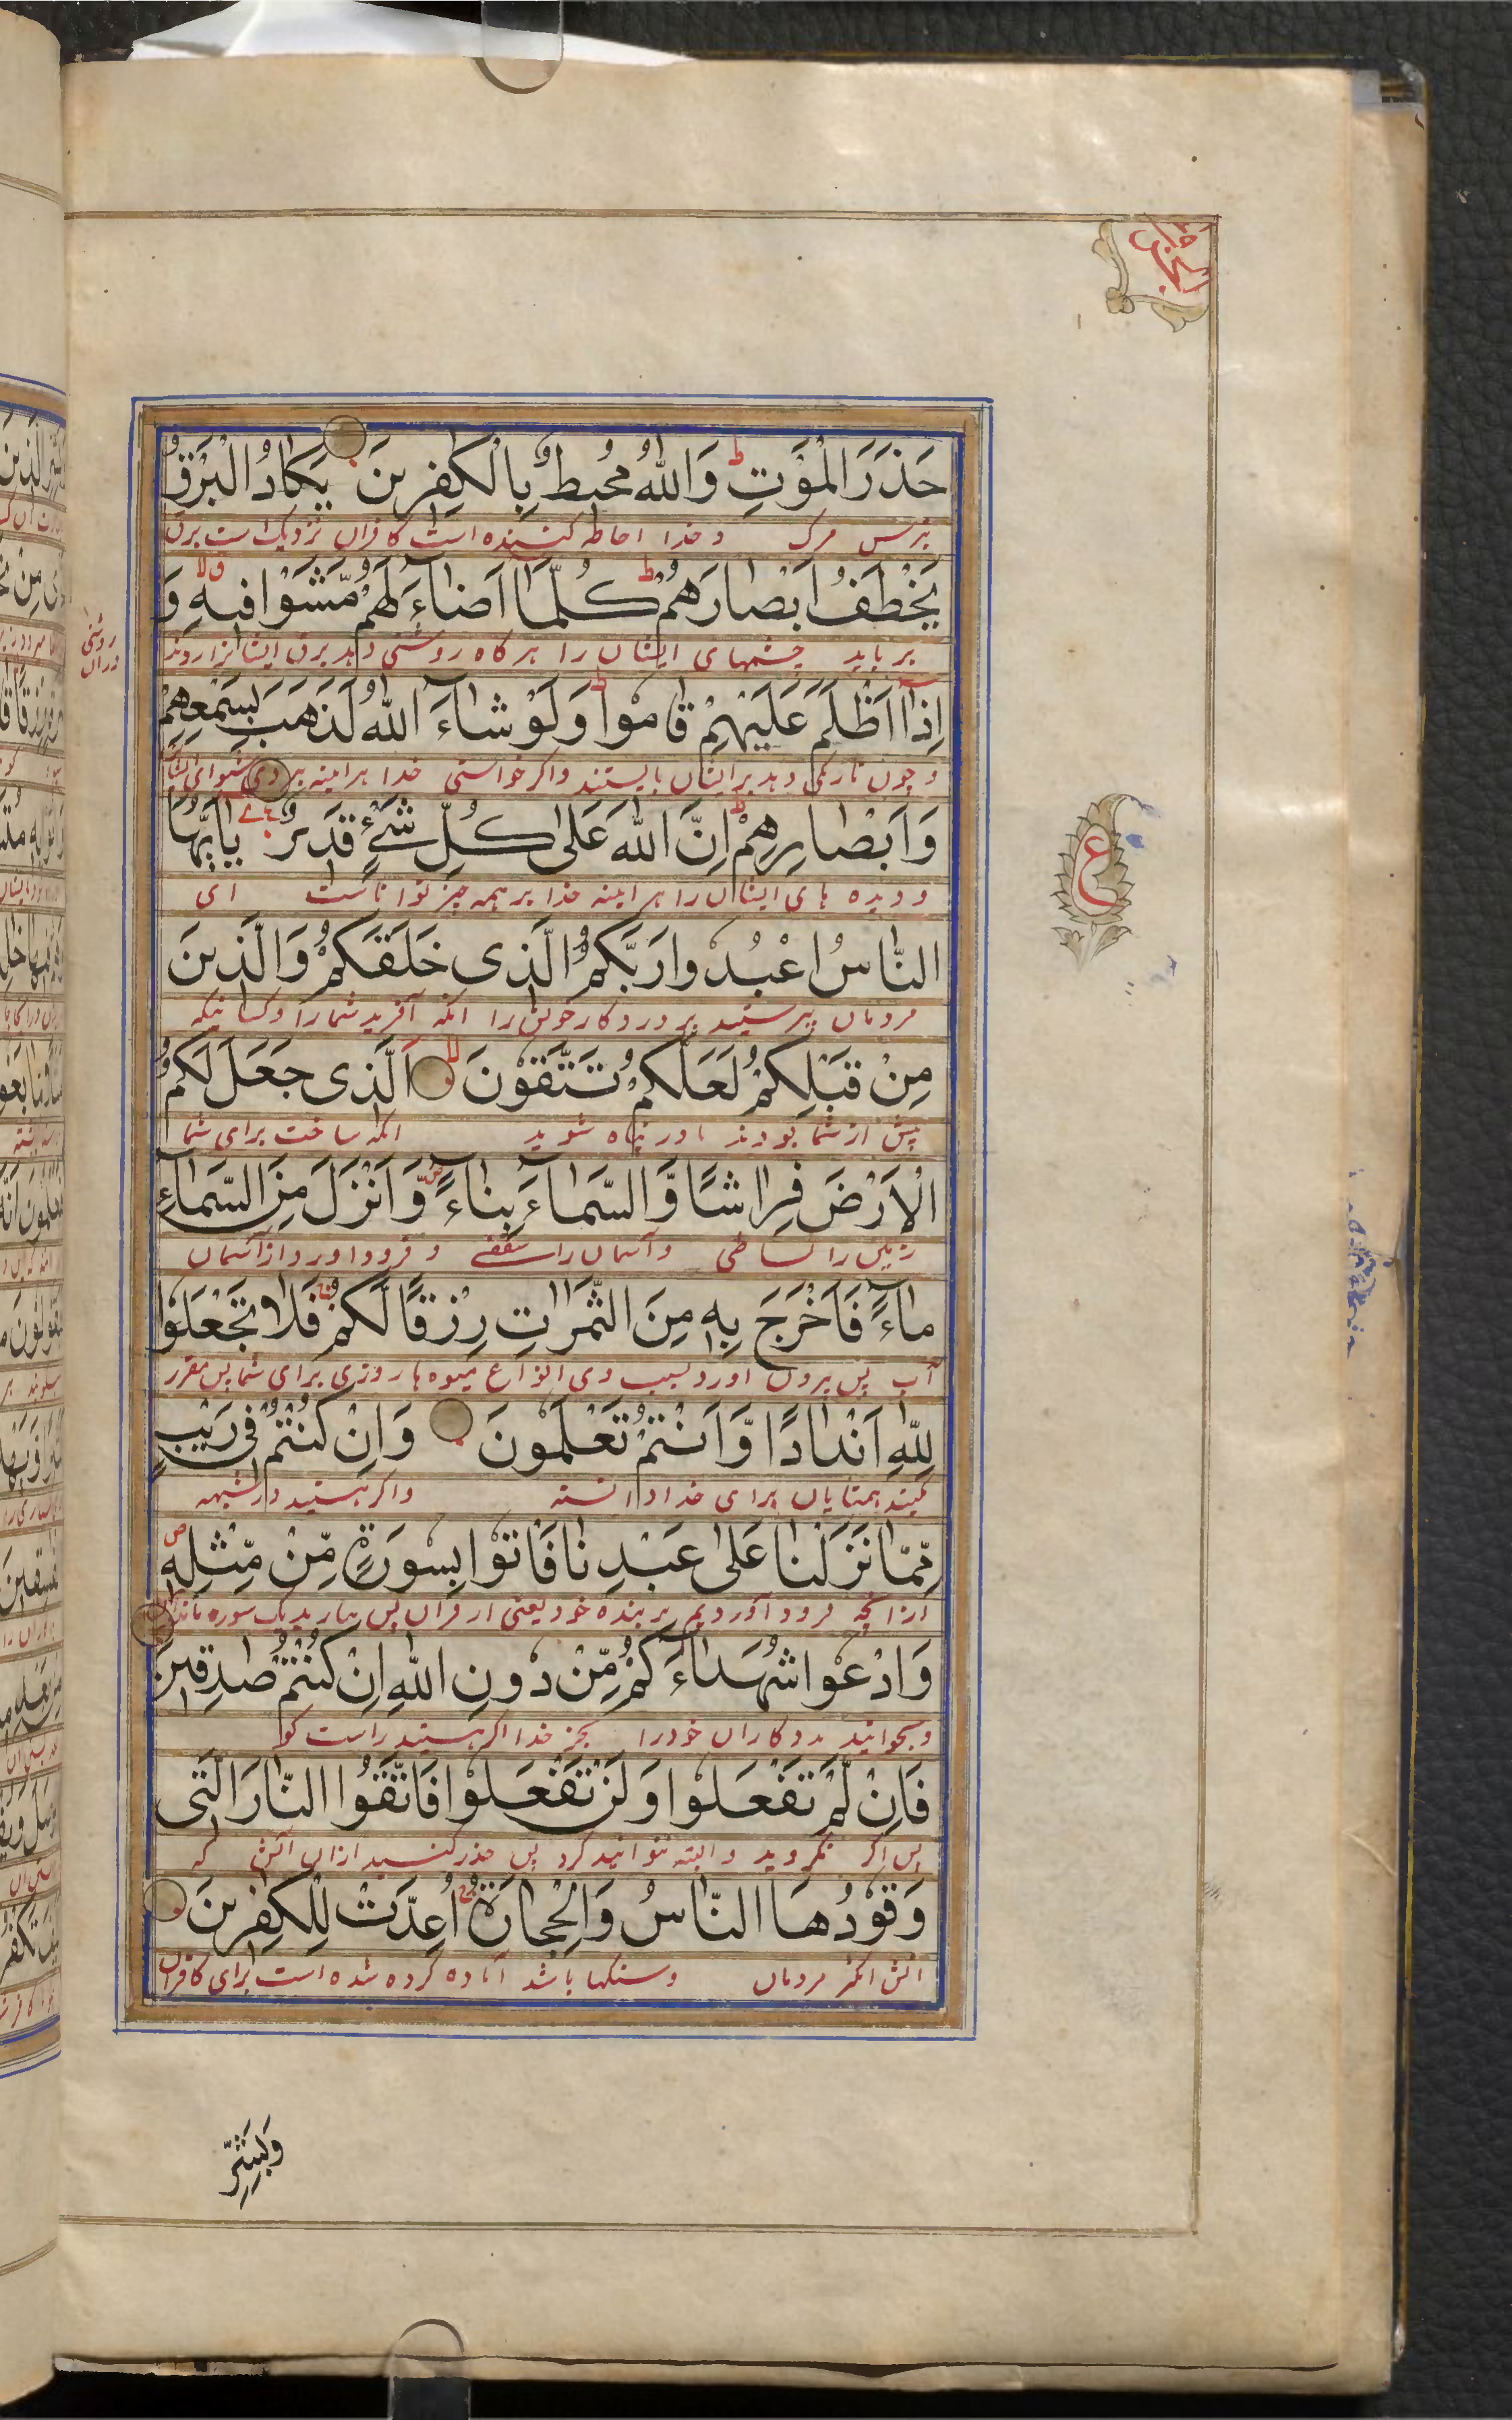 حَذَرَ الْمَوْتِ ط وَاللّٰهُ مُحِيطٌ بِالْكٰفِرِينَ يَكَادُ الْبَرْقُ
بترس مرک و خدا احاطه کننده است کافران نزدیک است برق
يَخْطَفُ اَبْصَارَهُمْ ط كُلَّمَا اَضَاءَ لَهُمْ مَّشَوْا فِيهِ ق لا وَ
برباید چشمهای ایشان را هرگاه روشنی دهد برق ایشانرا روند
روشنی دران
اِذَا اَظْلَمَ عَلَيْهِمْ قَامُوا ط وَلَوْ شَاءَ اللّٰهُ لَذَهَبَ بِسَمْعِهِمْ
و چون تاریکی دهد برایشان بایستند واکر خواستی خدا هراینه ببردی شنوای ایشان
وَاَبْصَارِهِمْ ط اِنَّ اللّٰهَ عَلٰى كُلِّ شَيْءٍ قَدِيرٌ يٰاَيُّهَا
و دیده های ایشان را هراینه خدا بر همه چیز تواناست ای
ع
النَّاسُ اعْبُدُوا رَبَّكُمُ الَّذِى خَلَقَكُمْ وَالَّذِينَ
مردمان بپرستید پروردکار خویش را انکه آفرید شمارا و کسانیکه
مِنْ قَبْلِكُمْ لَعَلَّكُمْ تَتَّقُونَ لا اَلَّذِى جَعَلَ لَكُمُ
پیش از شما بودند تا در پناه شوید انکه ساخت برای شما
الْاَرْضَ فِرَاشًا وَّالسَّمَاءَ بِنَاءً ص وَّاَنْزَلَ مِنَ السَّمَاءِ
زمین را بساطی و آسمان را سقفے و فرود اورد از آسمان
مَاءً فَاَخْرَجَ بِهٖ مِنَ الثَّمَرٰتِ رِزْقًا لَّكُمْ ج فَلَا تَجْعَلُوا
آب پس بیرون اورد بسبب وی انواع میوه ها روزی برای شما پس مقرر
لِلّٰهِ اَنْدَادًا وَّاَنْتُمْ تَعْلَمُونَ وَاِنْ كُنْتُمْ فِى رَيْبٍ
مکنید همتایان برای خدا دانسته و اکر هستید در شبهه
مِّمَّا نَزَّلْنَا عَلٰى عَبْدِنَا فَاْتُوا بِسُورَةٍ مِّنْ مِّثْلِهٖ ص
ازانچه فرود آوردیم بر بنده خود یعنی از قران پس بیارید یک سوره مانند
وَادْعُوا شُهَدَاءَكُمْ مِّنْ دُونِ اللّٰهِ اِنْ كُنْتُمْ صٰدِقِينَ
و بخوانید مددکاران خودرا بجز خدا اکر هستید راست کو
فَاِنْ لَّمْ تَفْعَلُوا وَلَنْ تَفْعَلُوا فَاتَّقُوا النَّارَ الَّتِى
پس اکر نکردید و البته نتوانید کرد پس حذر کنید ازان آتش که
وَقُودُهَا النَّاسُ وَالْحِجَارَةُ ج اُعِدَّتْ لِلْكٰفِرِينَ
آتش انکیز مردمان و سنکها باشد آماده کرده شده است برای کافران
وَبَشِّرِ